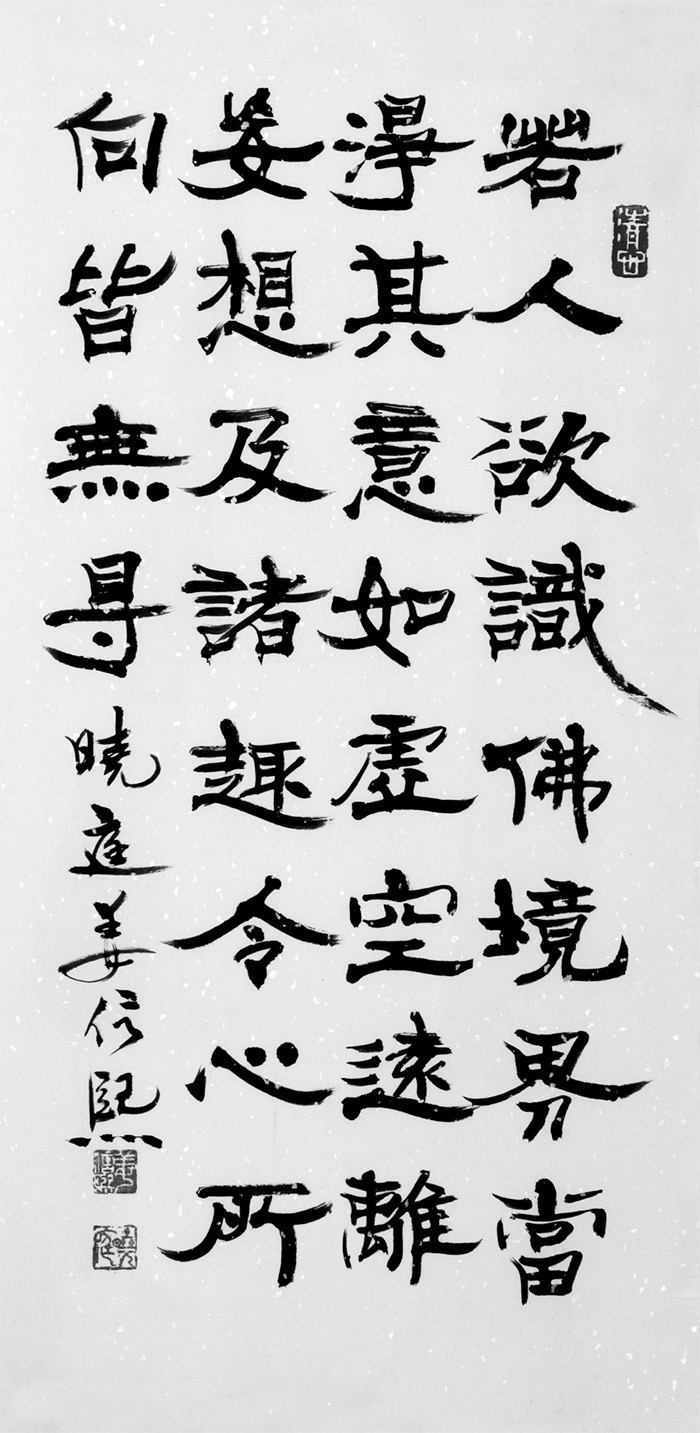 清世
若人欲識佛境界當
淨其意如虛空遠離
妄想及諸趣令心所
向皆無㝵 曉庭姜信熙